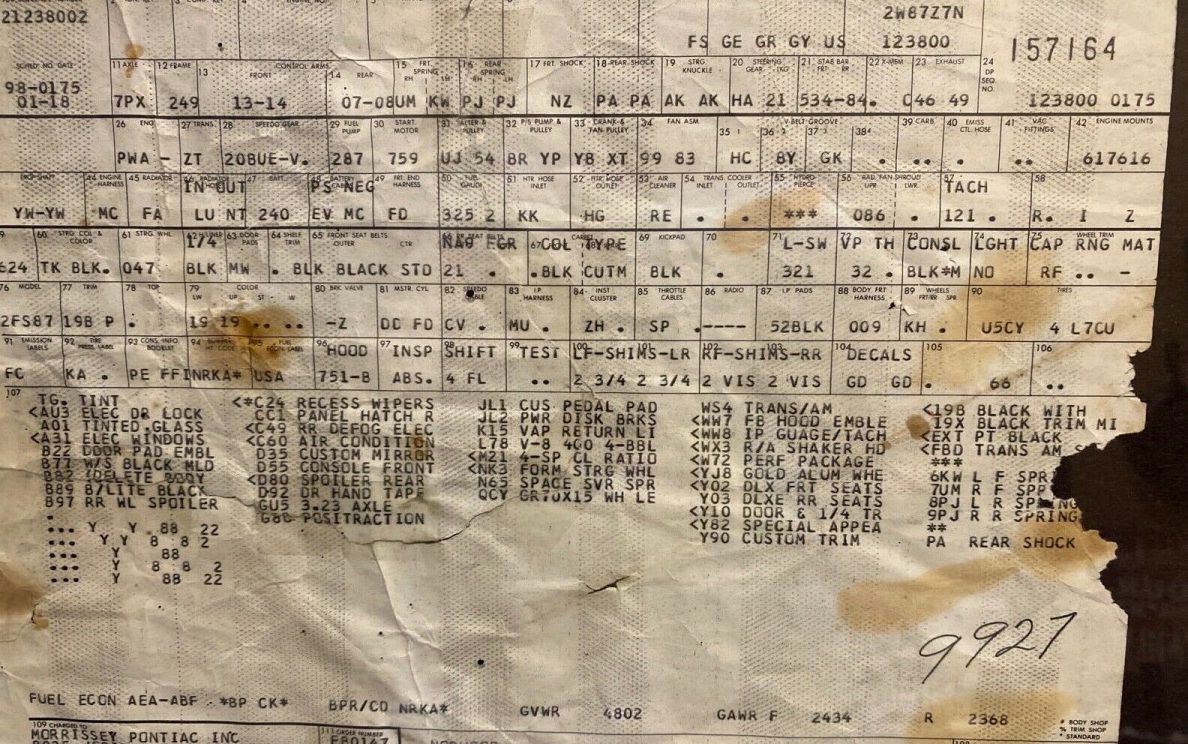 21238002
2W87Z7N
FS GE GR GY US 123800
157164
SCHED. NO. DATE 11 AXLE 12 FRAME 13 CONTROL ARMS FRONT 14 REAR 15 FRT. SPRING RH LH 16 REAR SPRING RH LH 17 FRT. SHOCK 18 REAR SHOCK 19 STRG KNUCKLE 20 STEERING GEAR LKG 21 STAB BAR FRT RR 22 X-MEM 23 EXHAUST 24 DP SEQ. NO.
98-0175
01-18 7PX 249 13-14 07-08 UM KW PJ PJ NZ PA PA AK AK HA 21 534-84. C46 49 123800 0175
26 ENG 27 TRANS. 28 SPEEDO GEAR 29 FUEL PUMP 30 START. MOTOR 31 ALTER & PULLEY 32 P/S PUMP & PULLEY 33 CRANK & FAN PULLEY 34 FAN ASM 35 36 V-BELT GROOVE 37 38 39 CARB. 40 EMISS CTL. HOSE 41 VAC FITTINGS 42 ENGINE MOUNTS
PWA - ZT 208UE-V. 287 759 UJ 54 BR YP Y8 XT 99 83 HC 8Y GK . .. . .. 617616
44 ENGINE HARNESS 45 RADIATOR IN-OUT 47 BATT. PS NEG 49 FRT. END HARNESS 50 FUEL GAUGE 51 HTR. HOSE INLET 52 HTR. HOSE OUTLET 53 AIR CLEANER 54 TRANS. COOLER INLET OUTLET 55 HYDRO PIERCE 56 RAD. FAN SHROUD UPR LWR 57 TACH 58
YW-YW MC FA LU NT 240 EV MC FD 325 2 KK HG RE . . *** 086 . 121 . R. I Z
60 STRG COL & COLOR 61 STRG. WHL 1/4 63 DOOR PADS 64 SHELF TRIM 65 FRONT SEAT BELTS OUTER CTR NAO FGR 67 COL TYPE 69 KICKPAD 70 71 L-SW 72 VP TH 73 CONSL 74 LGHT 75 CAP RNG MAT
624 TK BLK. 047 BLK MW . BLK BLACK STD 21 . .BLK CUTM BLK . 321 32 . BLK*M NO RF .. -
76 MODEL 77 TRIM 78 TOP 79 COLOR LW UP ST W 80 BRK VALVE 81 MSTR. CYL 82 SPEEDO CABLE 83 I.P. HARNESS 84 INST CLUSTER 85 THROTTLE CABLES 86 RADIO 87 I.P PADS 88 BODY FRT HARNESS 89 WHEELS FRT/RR SPR 90 TIRES
2FS87 19B P . 19 19 .. .. -Z DC FD CV . MU . ZH . SP .---- 52BLK 009 KH . U5CY 4 L7CU
91 EMISSION LABELS 92 TIRE PRESS. LABEL 93 CONS. INFO. BOOKLET 94 95 FUEL ECON. LABEL 96 HOOD 97 INSP 98 SHIFT 99 TEST 100 LF-SHIMS-LR 102 RF-SHIMS-RR 104 DECALS 105 106
FC KA . PE FFINRKA* USA 751-B ABS. 4 FL .. 2 3/4 2 3/4 2 VIS 2 VIS GD GD . 66 ..
107
TG. TINT <*C24 RECESS WIPERS JL1 CUS PEDAL PAD WS4 TRANS/AM <19B BLACK WITH
<AU3 ELEC DR LOCK CC1 PANEL HATCH R JL2 PWR DISK BRKS <WW7 FB HOOD EMBLE 19X BLACK TRIM MI
A01 TINTED.GLASS <C49 RR DEFOG ELEC K15 VAP RETURN LI <WW8 IP GUAGE/TACH <EXT PT BLACK
<A31 ELEC WINDOWS <C60 AIR CONDITION L78 V-8 400 4-BBL <WX3 R/A SHAKER HD <FBD TRANS AM
B22 DOOR PAD EMBL D35 CUSTOM MIRROR <M21 4-SP CL RATIO <W72 PERF PACKAGE ***
B77 W/S BLACK MLD D55 CONSOLE FRONT <NK3 FORM STRG WHL <YJ8 GOLD ALUM WHE 6KW L F SPR
B82 *DELETE BODY <D80 SPOILER REAR N65 SPACE SVR SPR <Y02 DLX FRT SEATS 7UM R F SPR
B89 B/LITE BLACK D92 DR HAND TAPE QCY GR70X15 WH LE Y03 DLXE RR SEATS 8PJ L R SPRING
B97 RR WL SPOILER GU5 3.23 AXLE <Y10 DOOR & 1/4 TR 9PJ R R SPRING
. G80 POSITRACTION <Y82 SPECIAL APPEA **
... Y Y 88 22 Y90 CUSTOM TRIM PA REAR SHOCK
... Y Y 8 8 2
... Y 88
... Y 8 8 2
... Y 88 22
9927
FUEL ECON AEA-ABF . *BP CK* BPR/CO NRKA* GVWR 4802 GAWR F 2434 R 2368
# BODY SHOP
% TRIM SHOP
* STANDARD
109 CHARGED TO 111 ORDER NUMBER
MORRISSEY PONTIAC INC